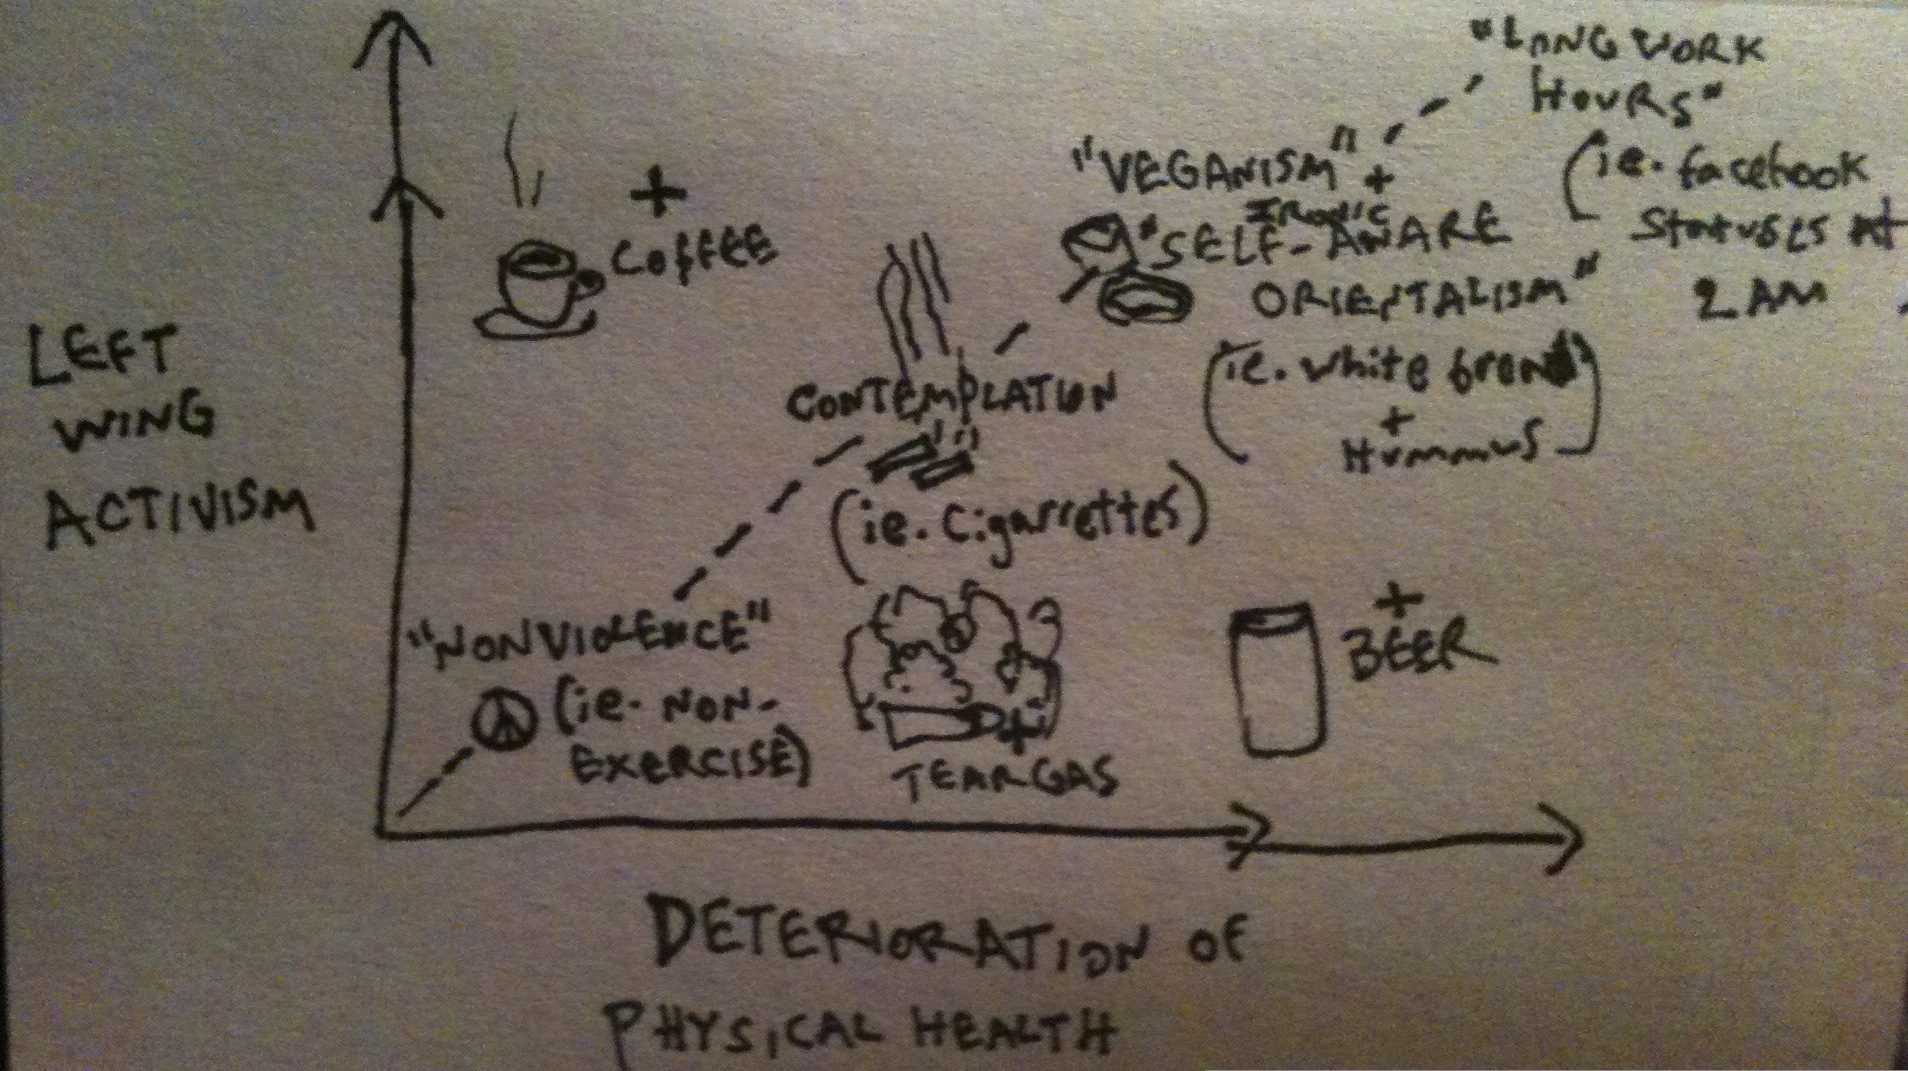 LEFT
WING
ACTIVISM
+
COFFEE
"NONVIOLENCE"
(ie. NON-
EXERCISE)
CONTEMPLATION
(ie. Cigarrettes)
+
TEARGAS
"VEGANISM" +
IRONIC
"SELF-AWARE
ORIENTALISM"
(ie. white bread
+
Hummus)
"LONG WORK
HOURS"
(ie. facebook
Statuses At
2 AM
+
BEER
DETERIORATION OF
PHYSICAL HEALTH